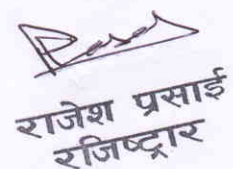 राजेश प्रसाई
रजिष्ट्रार